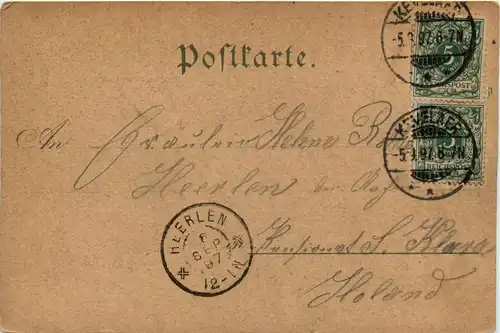 KEVELAER
-5.9.97.6-7N.
5
REICHSPOST
Postkarte.
KEVELAER
-5.9.97.6-7N.
5
REICHSPOST
An Fräulein Helene
Heerlen
HEERLEN
6
SEP
97
12-1N
Pensionat S. Klara
Holand